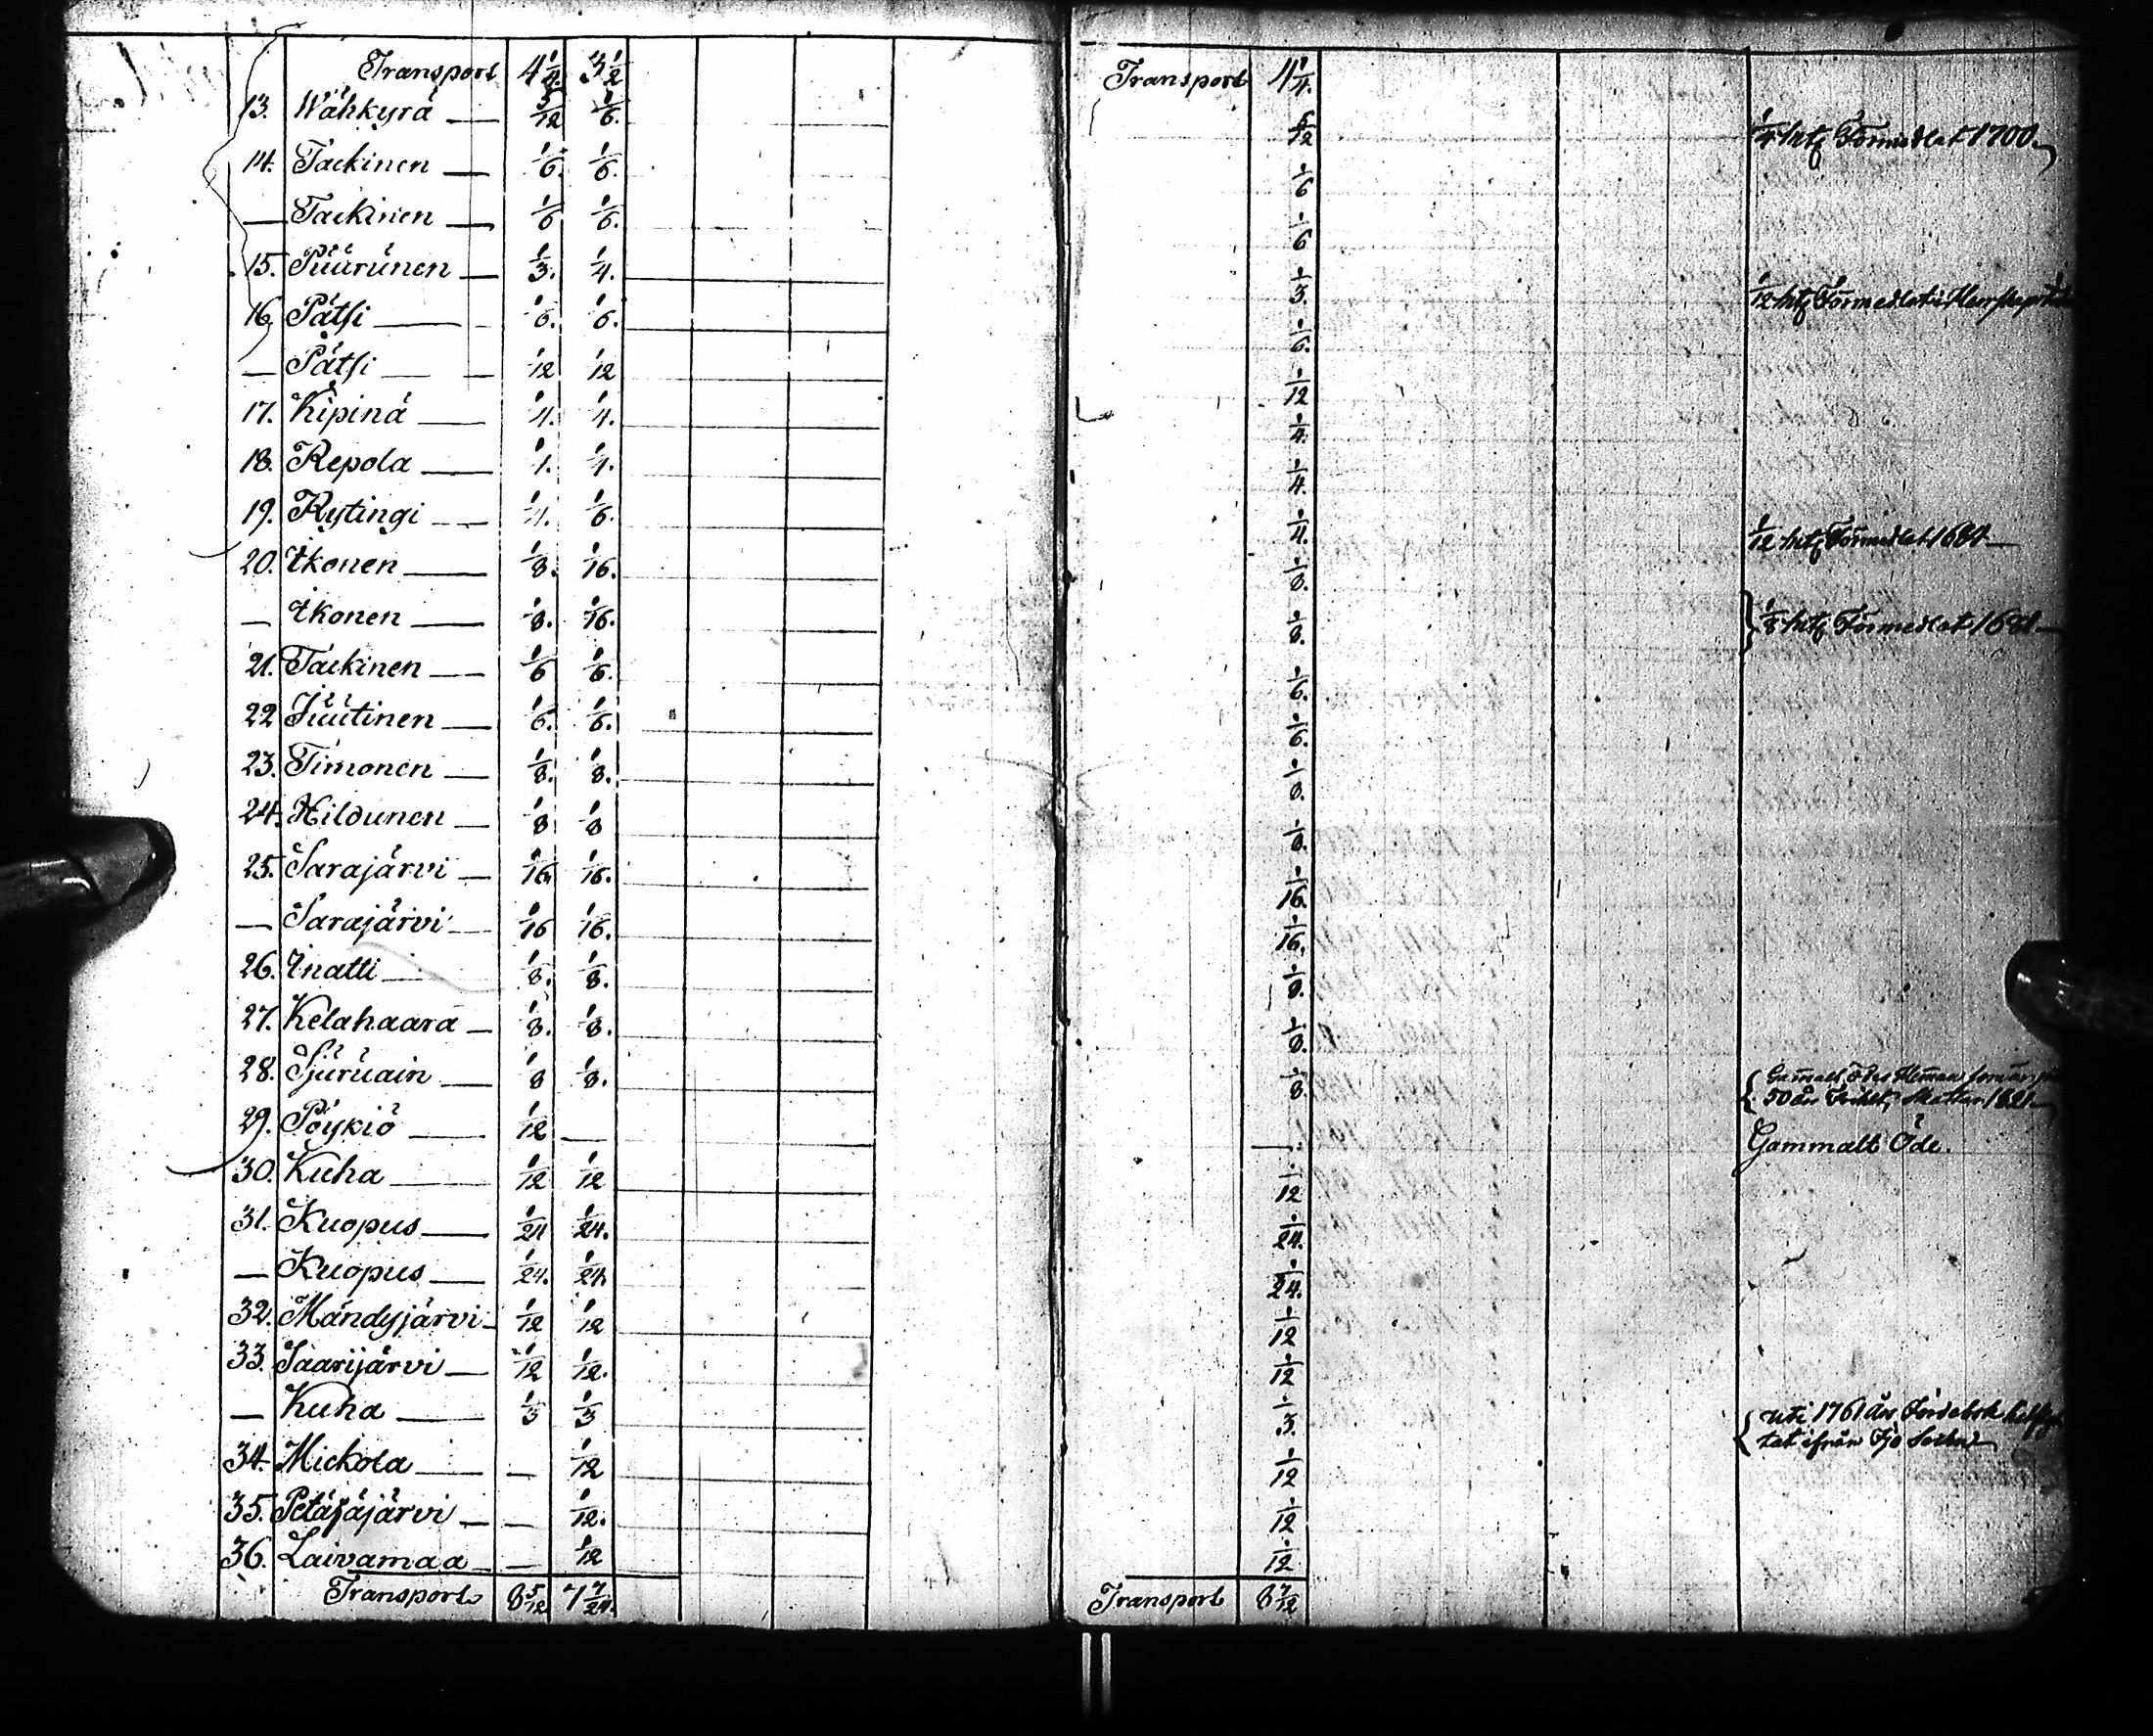 Transport 4 1/4. 3 1/2
13. Wähkyrä — 5/12 1/6.
14. Tackinen — 1/6. 1/6.
— Tackinen — 1/6 1/6.
15. Püürünen — 1/3. 1/4.
16. Pätsi — 1/6. 1/6.
— Pätsi — 1/12 1/12
17. Kipinä — 1/4. 1/4.
18. Repola — 1/4. 1/4.
19. Rytingi — 1/4. 1/6.
20. Ikonen — 1/8. 1/16.
— Ikonen — 1/8. 1/16.
21. Tackinen — 1/6 1/6.
22 Jüütinen — 1/6. 1/6.
23. Timonen — 1/8. 1/8.
24. Hildunen — 1/8 1/8
25. Sarajärvi — 1/16 1/16.
— Sarajärvi — 1/16 1/16.
26. Inatti — 1/8. 1/8.
27. Kelahaara — 1/8. 1/8.
28. Sjüruain — 1/8 1/8.
29. Pöykiö — 1/12 —
30. Kuha — 1/12 1/12
31. Kuopus — 1/24 1/24.
— Kuopus — 1/24. 1/24.
32. Mändyjärvi — 1/12 1/12
33. Saarijärvi — 1/12 1/12.
— Kuha — 1/3 1/3
34. Mickola — — 1/12
35. Petäjäjärvi — — 1/12.
36. Laivamaa — — 1/12
Transport 8 5/12 7 7/24.
Transport 4 1/4.
5/12 1/4 Förmedlat 1700.
1/6
1/6
1/3. 1/12 Förmedlat
1/6.
1/12
1/4.
1/4.
1/4. 1/12 Förmedlat 1684
1/8.
1/8. 1/8 Förmedlat
1/6.
1/6.
1/8.
1/8.
1/16.
1/16.
1/8.
1/8.
1/8. 50 års
— Gammalt Öde.
1/12
1/24.
1/24.
1/12
1/12
1/3. uti 1761 års Jordebok
ifrån Ijo
1/12
1/12
1/12
Transport 8 7/12